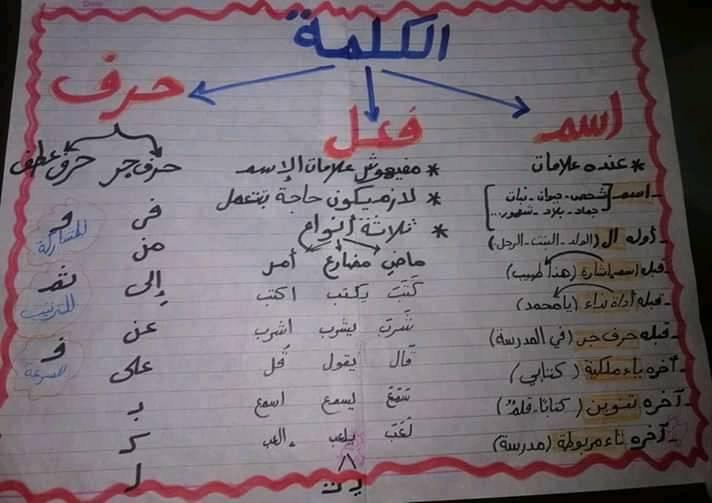 الكلمة
اسم
فعل
حرف
* عنده علامات
- اسم [شخص - حيوان - نبات
جماد - بلاد - شهور...]
- أوله ال (الولد - البنت - الرجل)
- قبله اسم إشارة (هذا طبيب)
- قبله أداة نداء (يا محمد)
- قبله حرف جر (في المدرسة)
- آخره ياء ملكية (كتابي)
- آخره تنوين (كتابًا - قلمٌ)
- آخره تاء مربوطة (مدرسة)
* مفيهوش علامات الإسم
* لازم يكون حاجة بتتعمل
* ثلاثة أنواع
ماضِ مضارع أمر
كَتَبَ يكتب اكتب
شَرب يشرب اشرب
قَال يقول قُل
سَمَعَ يسمع اسمع
لَعَبَ يلعب العب
حرف جر
فى
من
إلى
عن
على
بـ
كـ
لـ
حرف عطف
و
للمشاركة
ثم
للترتيب
فـ
للسرعة